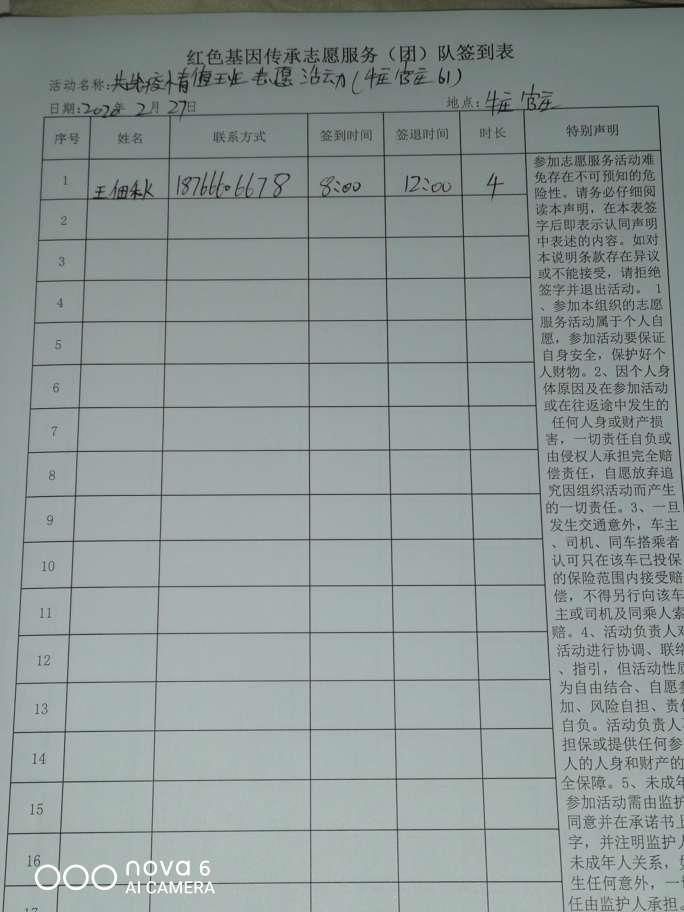 红色基因传承志愿服务（团）队签到表
活动名称:共给疫情值班志愿活动(牛庄官庄61)
日期:2020年2月27日 地点:牛庄官庄
序号 姓名 联系方式 签到时间 签退时间 时长 特别声明
1 王佃秋 18766606678 8:00 12:00 4
2
3
4
5
6
7
8
9
10
11
12
13
14
15
16
17
参加志愿服务活动难
免存在不可预知的危
险性。请务必仔细阅
读本声明，在本表签
字后即表示认同声明
中表述的内容。如对
本说明条款存在异议
或不能接受，请拒绝
签字并退出活动。 1
、参加本组织的志愿
服务活动属于个人自
愿，参加活动要保证
自身安全，保护好个
人财物。2、因个人身
体原因及在参加活动
或在往返途中发生的
任何人身或财产损
害，一切责任自负或
由侵权人承担完全赔
偿责任，自愿放弃追
究因组织活动而产生
的一切责任。3、一旦
发生交通意外，车主
、司机、同车搭乘者
认可只在该车已投保
的保险范围内接受赔
偿，不得另行向该车
主或司机及同乘人索
赔。4、活动负责人对
活动进行协调、联络
、指引，但活动性质
为自由结合、自愿参
加、风险自担、责任
自负。活动负责人不
担保或提供任何参
人的人身和财产的
全保障。5、未成年
参加活动需由监护
同意并在承诺书上
字，并注明监护人
未成年人关系，如
生任何意外，一切
任由监护人承担。
nova 6
AI CAMERA